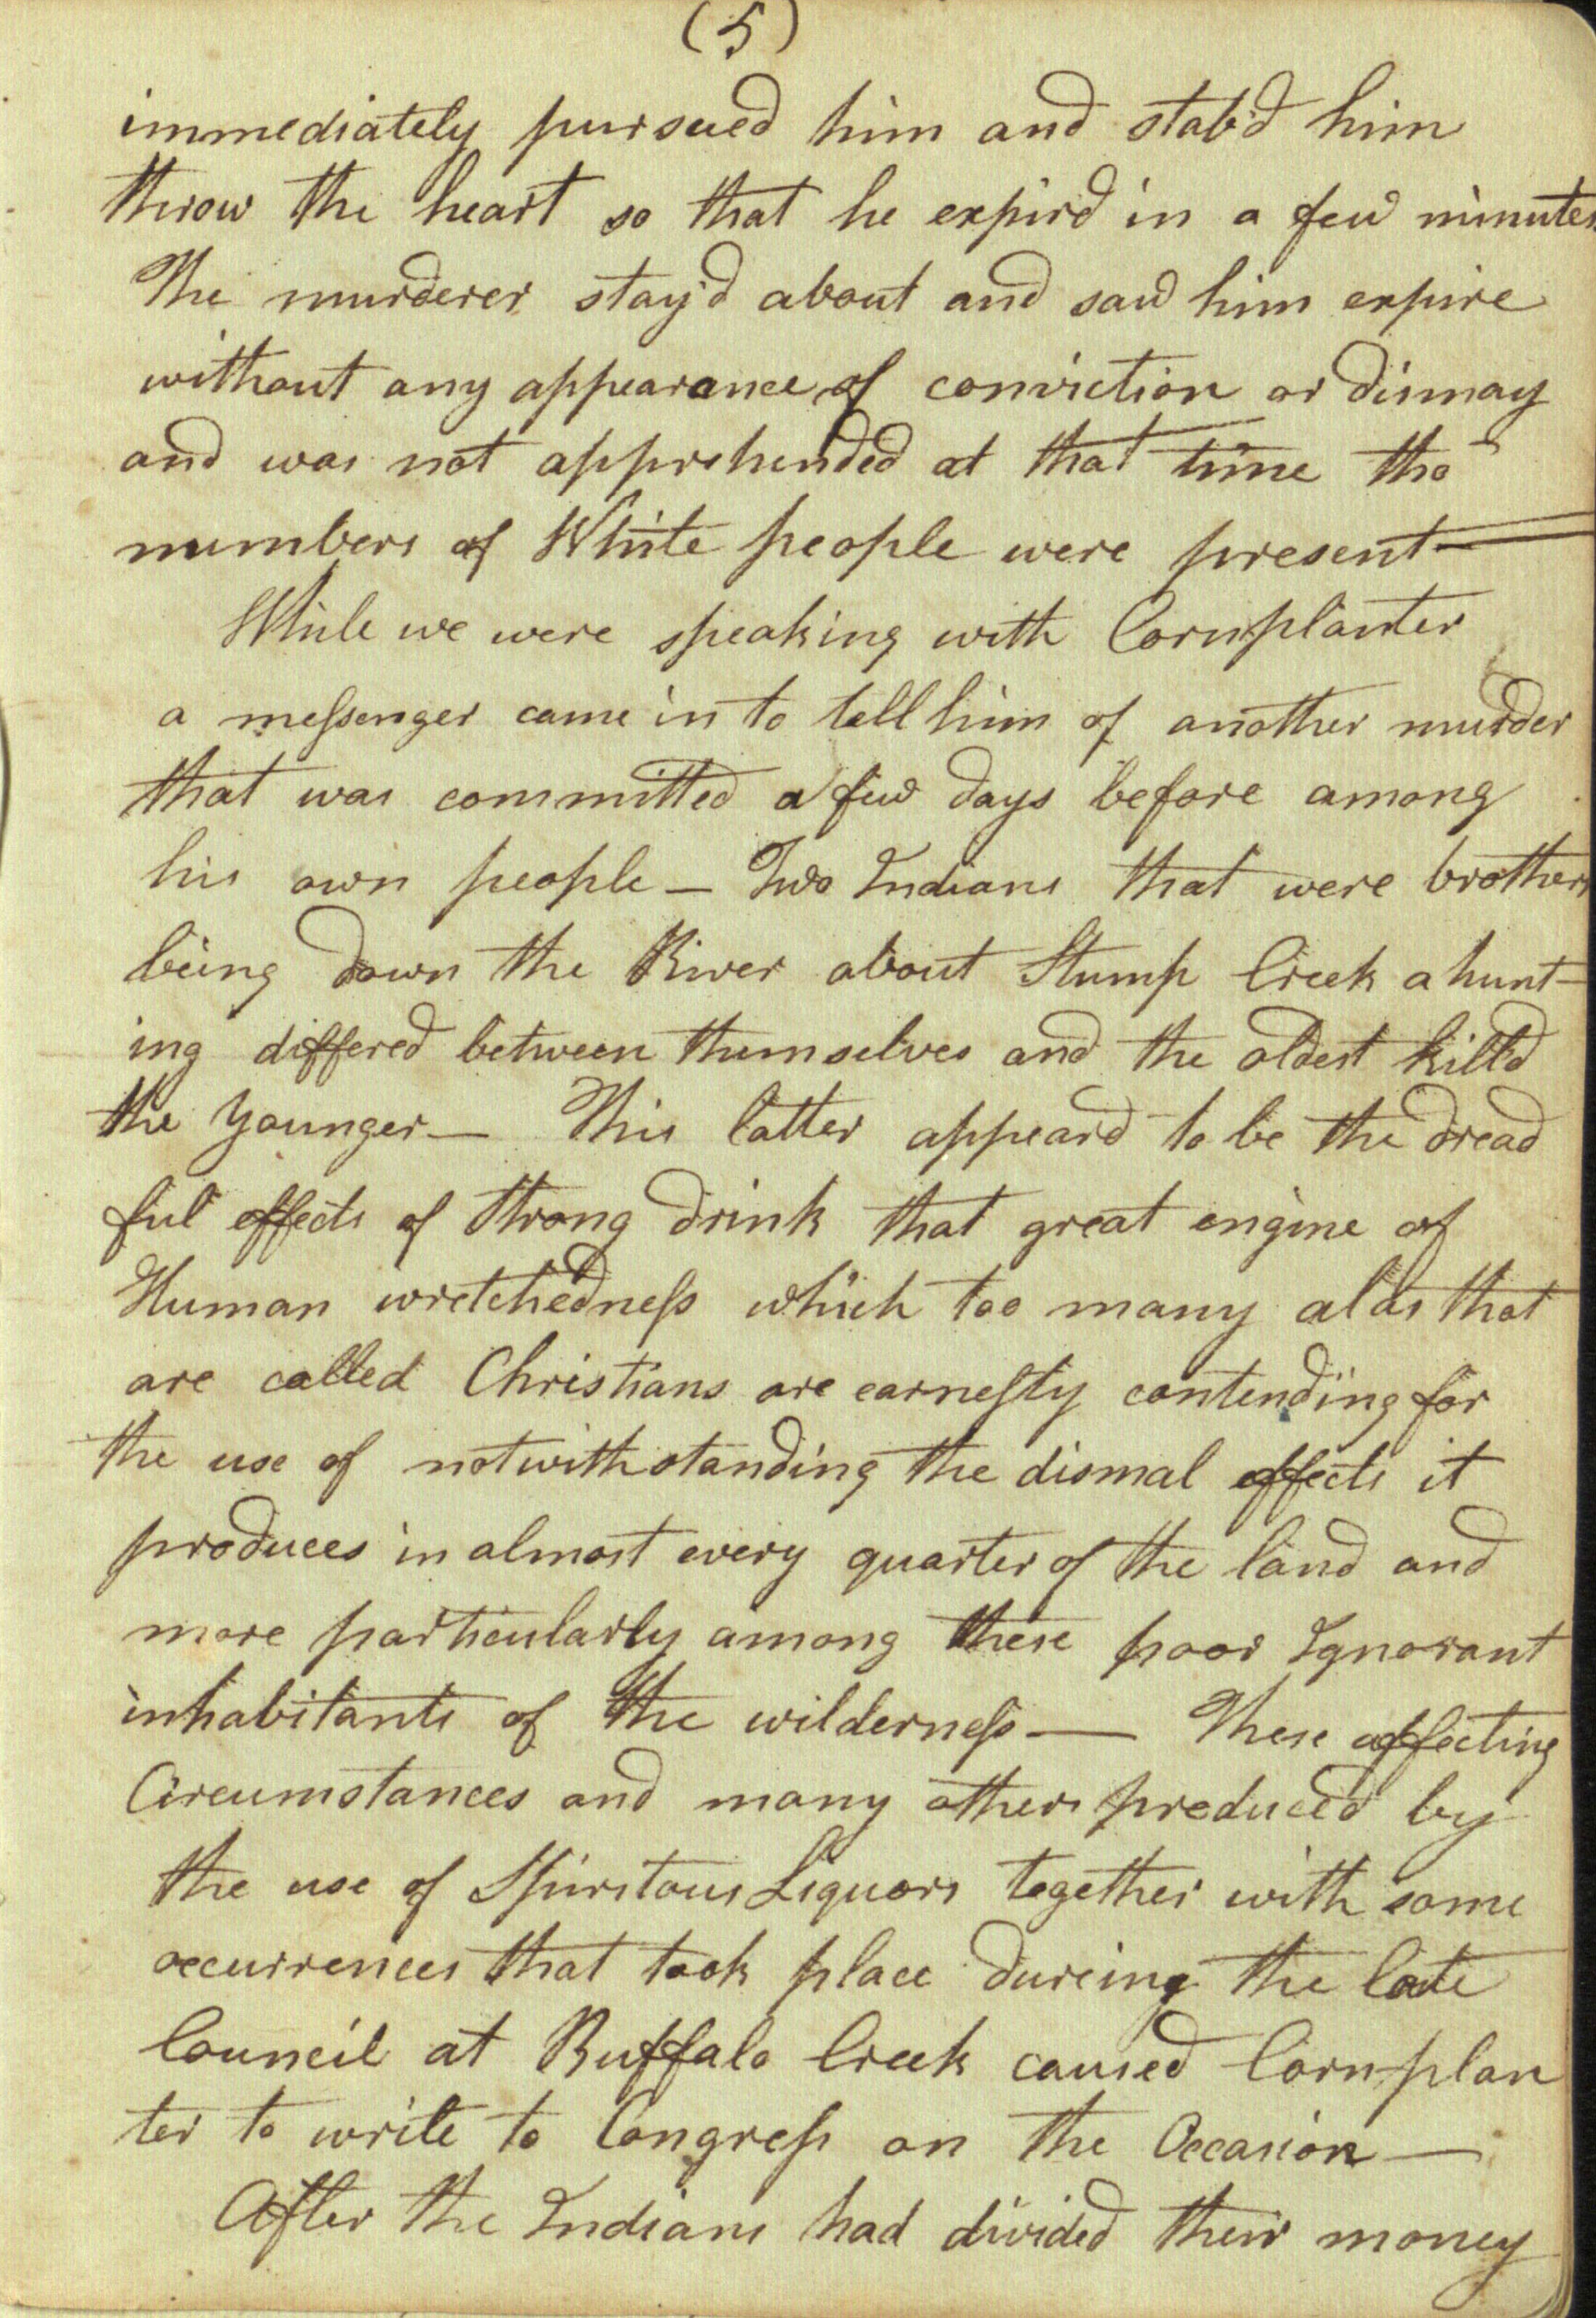 (5)
immediately pursued him and stab'd him
throw the heart so that he expird in a few minutes
The murderer stay'd about and saw him expire
without any appearance of conviction or dismay
and was not apprehended at that time tho
numbers of White people were present
While we were speaking with Cornplanter
a meſsenger came in to tell him of another murder
that was committed a few days before among
his own people — Two Indians that were brothers
being down the River about Stump Creek a hunt-
ing differed between themselves and the oldest kill'd
the Younger — This latter appeard to be the dread
ful effects of Strong drink that great engine of
Human wretchedneſs which too many alas that
are called Christians are earneſtly contending for
the use of notwithstanding the dismal effects it
produces in almost every quarter of the land and
more particularly among these poor Ignorant
inhabitants of the wilderneſs — These affecting
Circumstances and many others produced by
the use of Spiritous Liquors together with some
occurrences that took place dureing the late
Council at Buffalo Creek caused Cornplan
ter to write to Congreſs on the Occasion —
After the Indians had divided their money